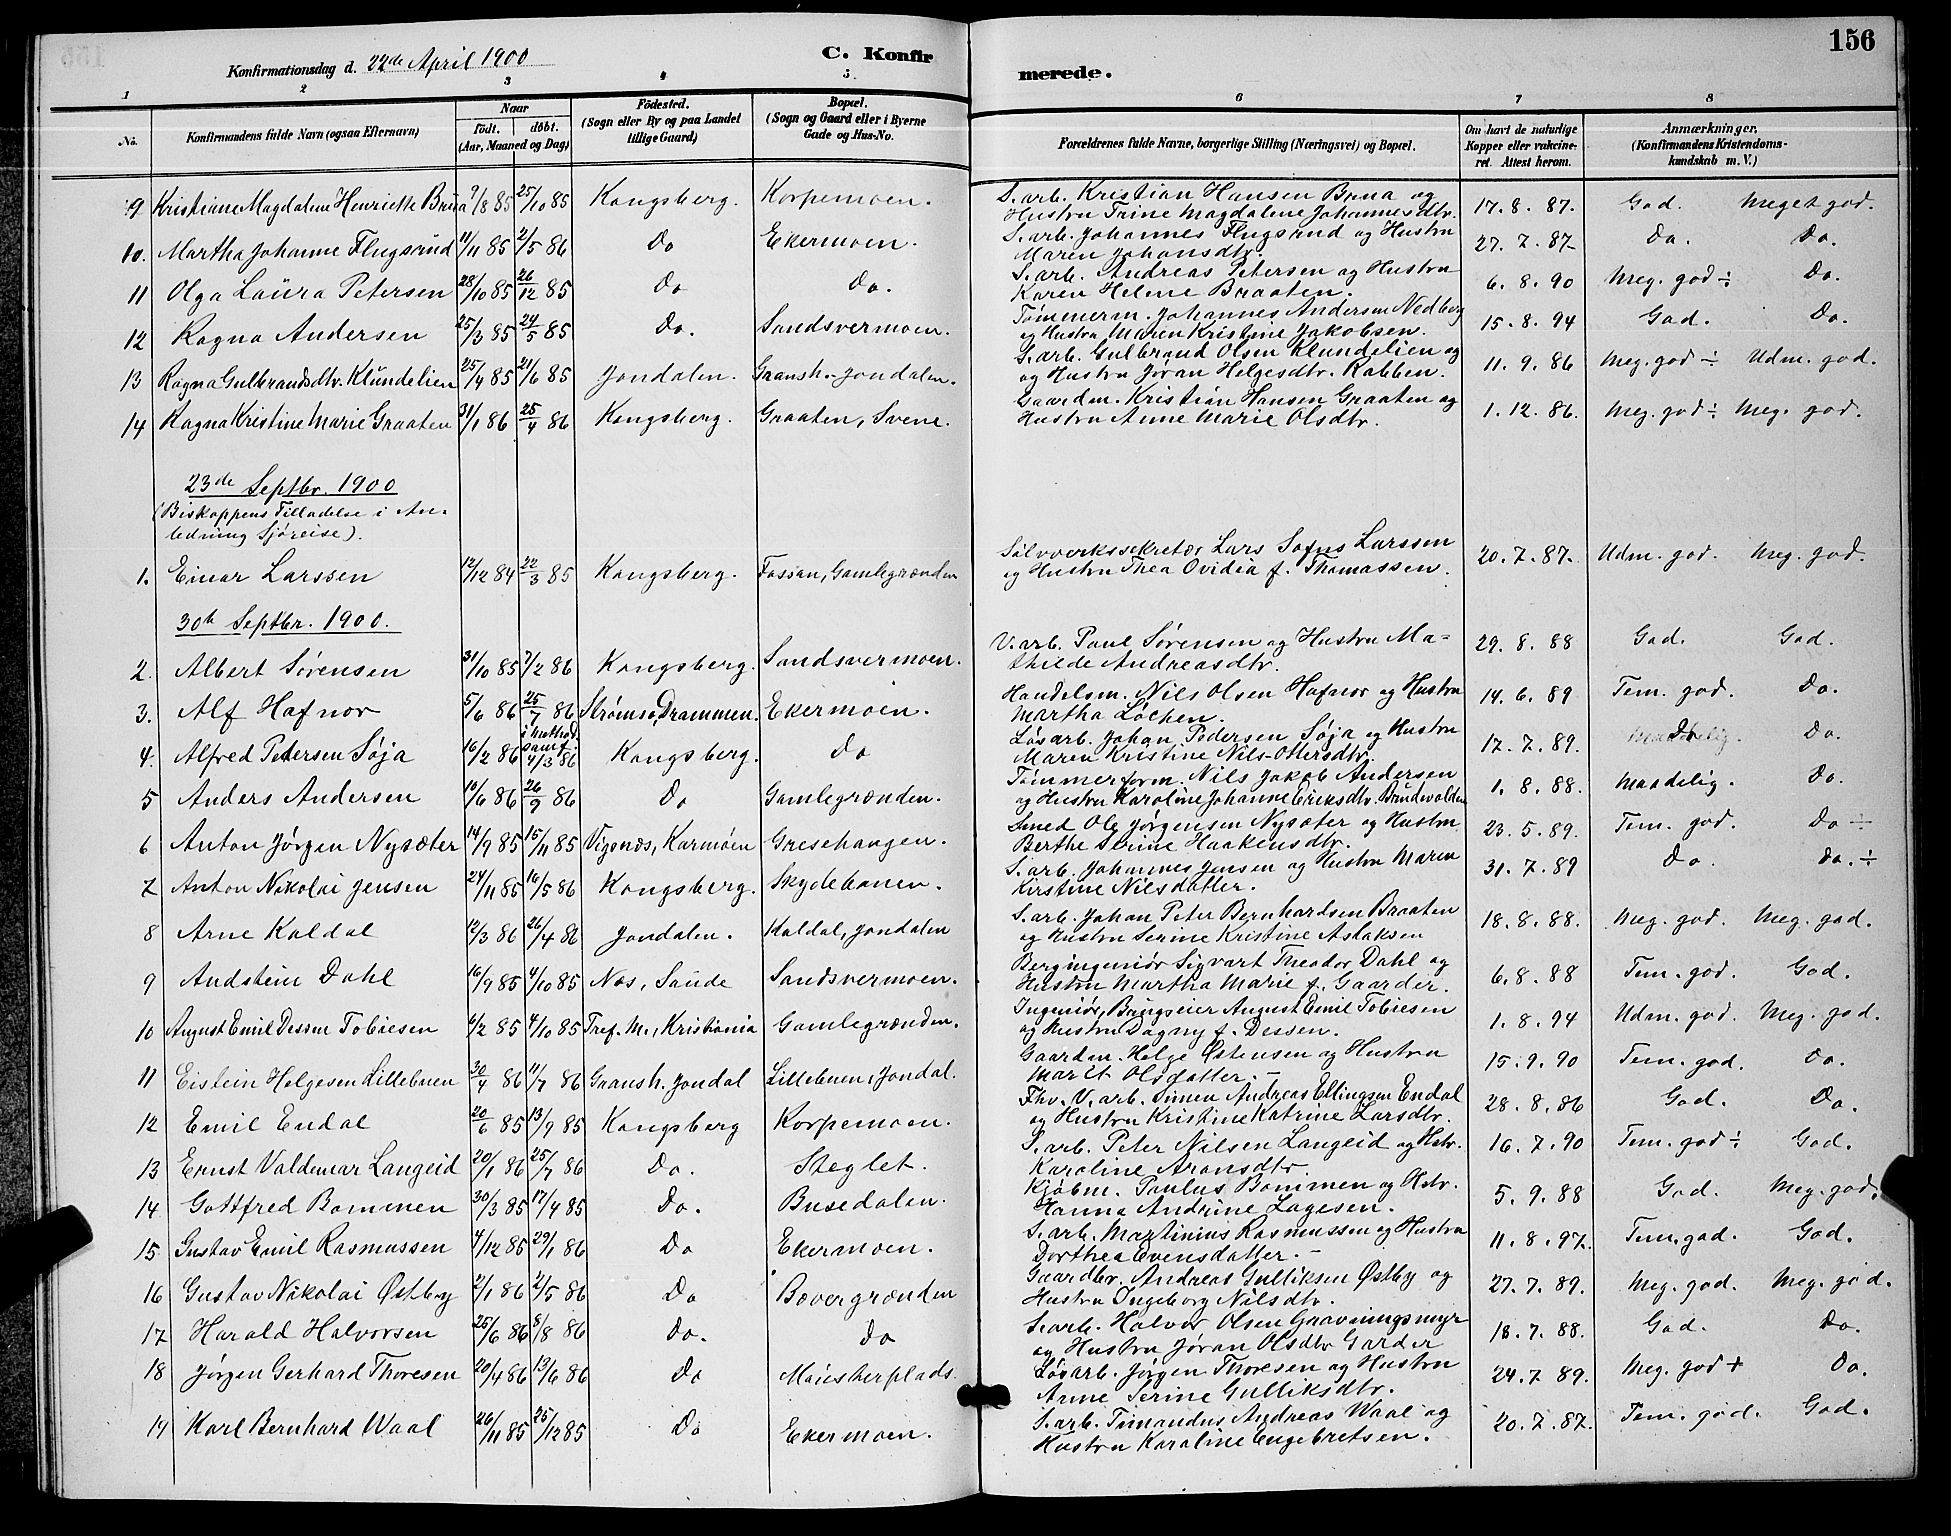 156
Konfirmationsdag d. 22de April 1900
C. Konfirmerede.
1 2 3 4 5 6 7 8
No.
Konfirmandens fulde Navn (ogsaa Efternavn)
Naar
født. døbt.
(Aar, Maaned og Dag)
Fødested.
(Sogn eller By og paa Landet
tillige Gaard)
Bopæl.
(Sogn og Gaard eller i Byerne
Gade og Hus-No.
Forældrenes fulde Navne, borgerlige Stilling (Næringsvei) og Bopæl.
Om havt de naturlige
Kopper eller vakcine-
ret. Attest herom.
Anmærkninger.
(Konfirmandens Kristendoms-
kundskab m. V.)
9 Kristiane Magdalene Henriette Bruna 7/8 85 25/10 85 Kongsberg. Korpemoen. S. arb. Kristian Hansen Bruna og
Hustru Trine Magdalene Johannesdtr. 17. 8. 87. God. Meget god.
10. Martha Johanne Flugsrud 11/11 85 2/5 86 Do Ekermoen. S. arb. Johannes Flugsrud og Hustru
Maren Johansdtr. 27. 7. 87 Do. Do.
11 Olga Laura Petersen 28/10 85 26/12 85 Do Do. S. arb. Andreas Petersen og Hustru
Karen Helene Braaten. 6. 8. 90 Meg. god ÷ Do.
12 Ragna Andersen 25/3 85 24/5 85 Do. Sandsvermoen. Tømmerm. Johannes Andersen Nedberg
og Hustru Maren Kristine Jakobsen. 15. 8. 94 God. Do.
13 Ragna Gulbrandsdtr. Klundelien 25/4 85 21/6 85 Jondalen. Gransh. Jondalen. S. arb. Gulbrand Olsen Klundelien og
og Hustru Jøran Helgesdtr. Rabben. 11. 9. 86 Meg. god ÷ Udm. god.
14 Ragna Kristine Marie Graaten 31/1 86 25/4 86 Kongsberg. Graaten, Svene. Gaardm. Kristian Hansen Graaten og
Hustru Anne Marie Olsdtr. 1. 12. 86. Meg. god ÷ Meg. god.
23de Septbr. 1900
(Biskoppens Tilladelse i An-
ledning Sjøreise).
1. Einar Larssen 12/12 84 22/3 85 Kongsberg. Fossan, Gamlegrænden Sølvverkssekretær Lars Sofus Larssen
og Hustru Thea Ovidia f. Thomassen. 20. 7. 87. Udm. god. Meg. god.
30te Septbr. 1900.
2. Albert Sørensen 31/10 85 7/2 86 Kongsberg. Sandsvermoen. V. arb. Paul Sørensen og Hustru Ma-
thilde Andreasdtr. 29. 8. 88 God. God.
3. Alf Hafnor 5/6 86 25/7 86 Strømsø, Drammen. Ekermoen. Handelsm. Nils Olsen Hafnor og Hustru
Martha Løchen. 14. 6. 89 Tem. god. Do.
4. Alfred Petersen Søja 16/2 86 i Methodsamf. 4/3 86 Kongsberg. Do Løsarb. Johan Pedersen Søja og Hustru
Maren Kristine Nils-Ottersdtr. 17. 7. 89. Do Do.
5 Anders Andersen 10/6 86 26/9 86 Do Gamlegrænden. Tømmerform. Nils Jakob Andersen
og Hustru Karoline Johanne Eriksdtr. Brundvolden 1. 8. 88. Maadelig. Do.
6 Anton Jørgen Nysæter 14/9 85 15/11 85 Vigsnæs, Karmøen Gresehaugen. Smed Ole Jørgensen Nysæter og Hustru
Berthe Serine Haakensdtr. 23. 5. 89. Tem. god. Do ÷
7 Anton Nikolai Jensen 24/11 85 16/5 86 Kongsberg. Skydebanen. S. arb. Johannes Jensen og Hustru Maren
Kirstine Nilsdatter. 31. 7. 89 Do. Do. ÷
8 Arne Koldal 12/3 86 26/4 86 Jondalen. Koldal, Jondalen S. arb. Johan Peter Bernhardsen Braaten
og Hustru Serine Kristine Aslaksen 18. 8. 88. Meg. god. Meg. god.
9 Audstein Dahl 16/9 85 4/10 85 Næs, Saude Sandsvermoen. Bergingeniør Sigvart Theodor Dahl og
Hustru Martha Marie f. Gaarder. 6. 8. 88 Tem. god. God.
10 August Emil Dessen Tobiesen 6/2 85 4/10 85 Tref. M., Kristiania Gamlegrænden. Ingeniør, Brugseier August Emil Tobiesen
og Hustru Dagny f. Dessen. 1. 8. 94 Udm. god. Meg. god.
11 Eistein Helgesen Lillebuen 30/4 86 11/7 86 Gransh. Jondal Lillebuen, Jondal. Gaardm. Helge Østensen og Hustru
Marit Olsdatter. 15. 9. 90 Tem. god. Do.
12 Emil Endal 20/6 85 13/9 85 Kongsberg Korpemoen. Fhv. V. arb. Simen Andreas Ellingsen Endal
og Hustru Kristine Katrine Larsdtr. 28. 8. 86 God. Do.
13 Ernst Valdemar Langeid 20/1 86 25/7 86 Do. Steglet. S. arb. Peter Nilsen Langeid og Hstr.
Karoline Aronsdtr. 16. 7. 90 Tem. god ÷ God.
14 Gottfred Bommen 30/3 85 17/4 85 Do. Busedalen. Kjøbm. Paulus Bommen og Hstr.
Hanna Andrine Lagesen. 5. 9. 88 God. Meg. god.
15 Gustav Emil Rasmussen 4/12 85 29/1 86 Do Ekermoen. S. arb. Martinius Rasmussen og Hustru
Dorthea Evensdatter. 11. 8. 97. Tem. god. God.
16 Gustav Nikolai Østby 2/1 86 2/5 86 Do Bævergrænden Gaardbr. Andreas Gulliksen Østby og
Hustru Ingeborg Nilsdtr. 27. 7. 89. Meg. god. Meg. god.
17 Harald Halvorsen 25/6 86 8/8 86 Do. Do S. arb. Halvor Olsen Gravningsmyr
og Hustru Jøran Olsdtr Garder 18. 7. 88. God. Do.
18 Jørgen Gerhard Thoresen 20/4 86 13/6 86 Do Møiesherplads. Løsarb. Jørgen Thoresen og Hustru
Anne Serine Gulliksdtr. 24. 7 89. Meg. god + Do.
19 Karl Bernhard Waal 26/11 85 25/12 85 Do Ekermoen. S. arb. Timandus Andreas Waal og
Hustru Karoline Engebretsen. 20. 7. 87. Tem. god. God.